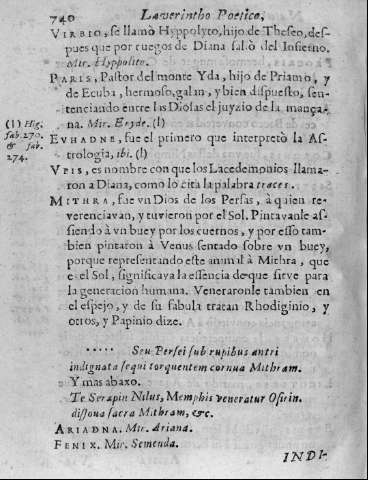 740 Laverintho Poetico,
VIRBIO, se llamò Hyppolyto, hijo de Theseo, des-
pues que por ruegos de Diana saliò del Infierno.
Mir. Hyppolito.
PARIS, Pastor del monte Yda, hijo de Priamo, y
de Ecuba, hermoso, galan, y bien dispuesto, sen-
tenciando entre las Diosas el juyzio de la mança-
na. Mir. Eryde. (l)
(l) Hig.
fab. 270.
& fab.
274.
EVHADNE, fue el primero que interpretò la As-
trologia, ibi. (l)
VPIS, es nombre con que los Lacedemonios llama-
ron a Diana, como lo cita la palabra traces.
MITHRA, fue vn Dios de los Persas, à quien re-
verenciavan, y tuvieron por el Sol. Pintavanle as-
siendo à vn buey por los cuernos, y por esso tam-
bien pintaron à Venus sentado sobre vn buey,
porque representando este animal à Mithra, que
es el Sol, significava la essencia de que sirve para
la generacion humana. Veneraronle tambien en
el espejo, y de su fabula tratan Rhodiginio, y
otros, y Papinio dize.
..... Seu Persei sub rupibus antri
indignata sequi torquentem cornua Mithram.
Y mas abaxo.
Te Serapin Nilus, Memphis veneratur Osirin.
dissona sacra Mithram, &c.
ARIADNA. Mir. Ariana.
FENIX. Mir. Semenda.
INDI-